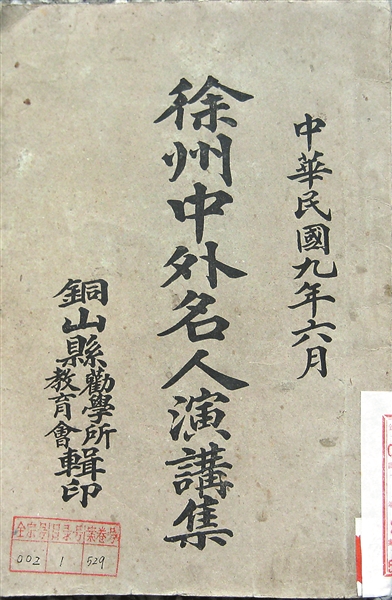 中華民國九年六月
徐州中外名人演講集
銅山縣勸學所教育會輯印
全宗号 目录号 案卷号
002 1 529